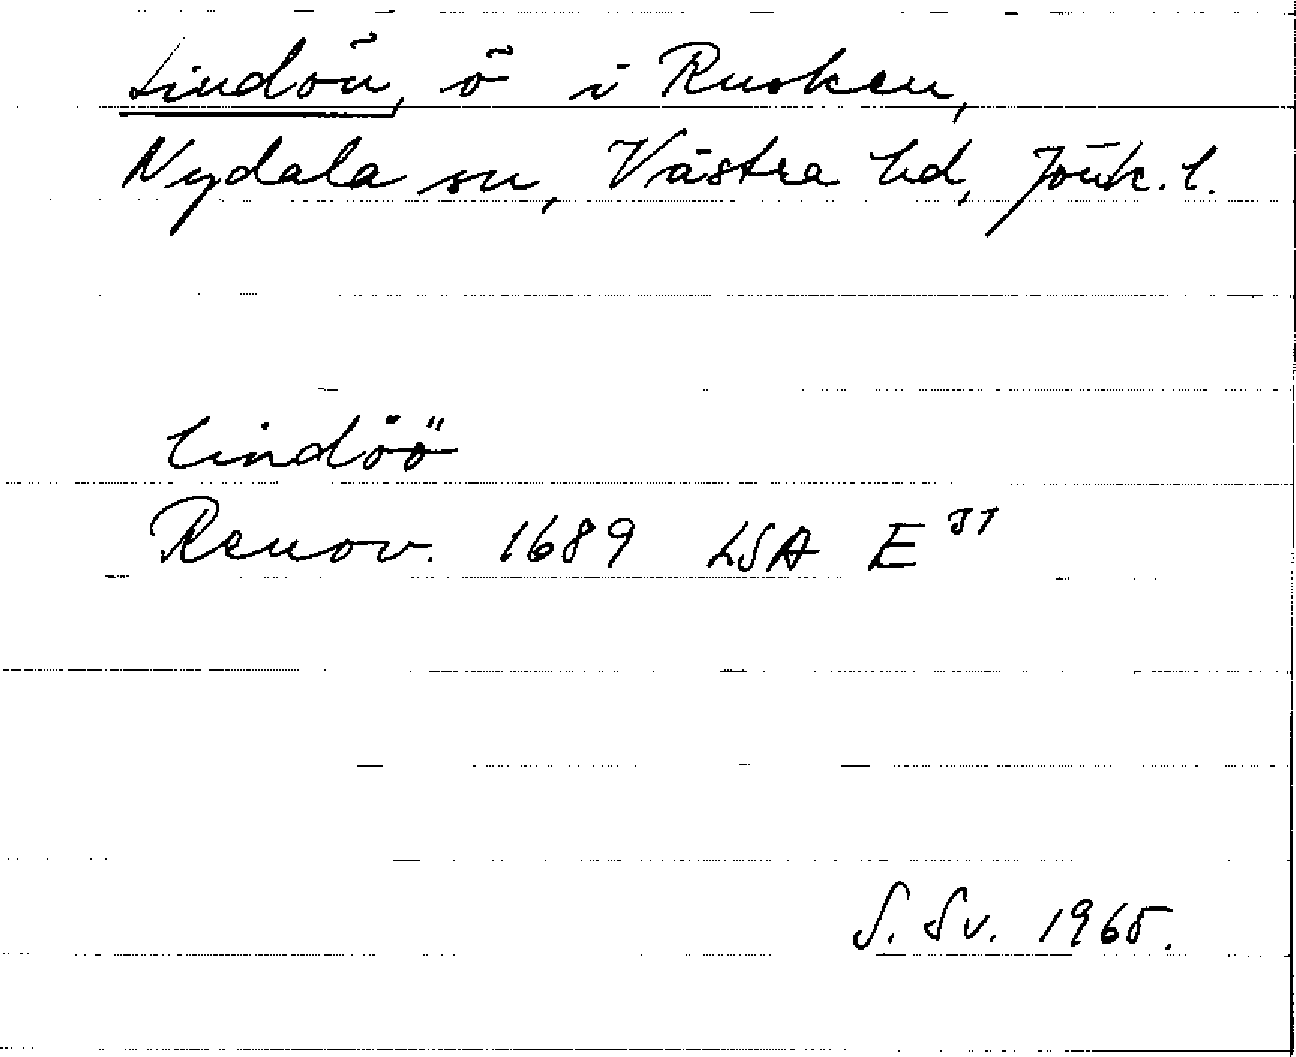 Lindön, ö i Rusken,
Nydala sn, Västra hd, Jönk. l.
lindöö
Renov. 1689 LSA E
S. Sv. 1965.